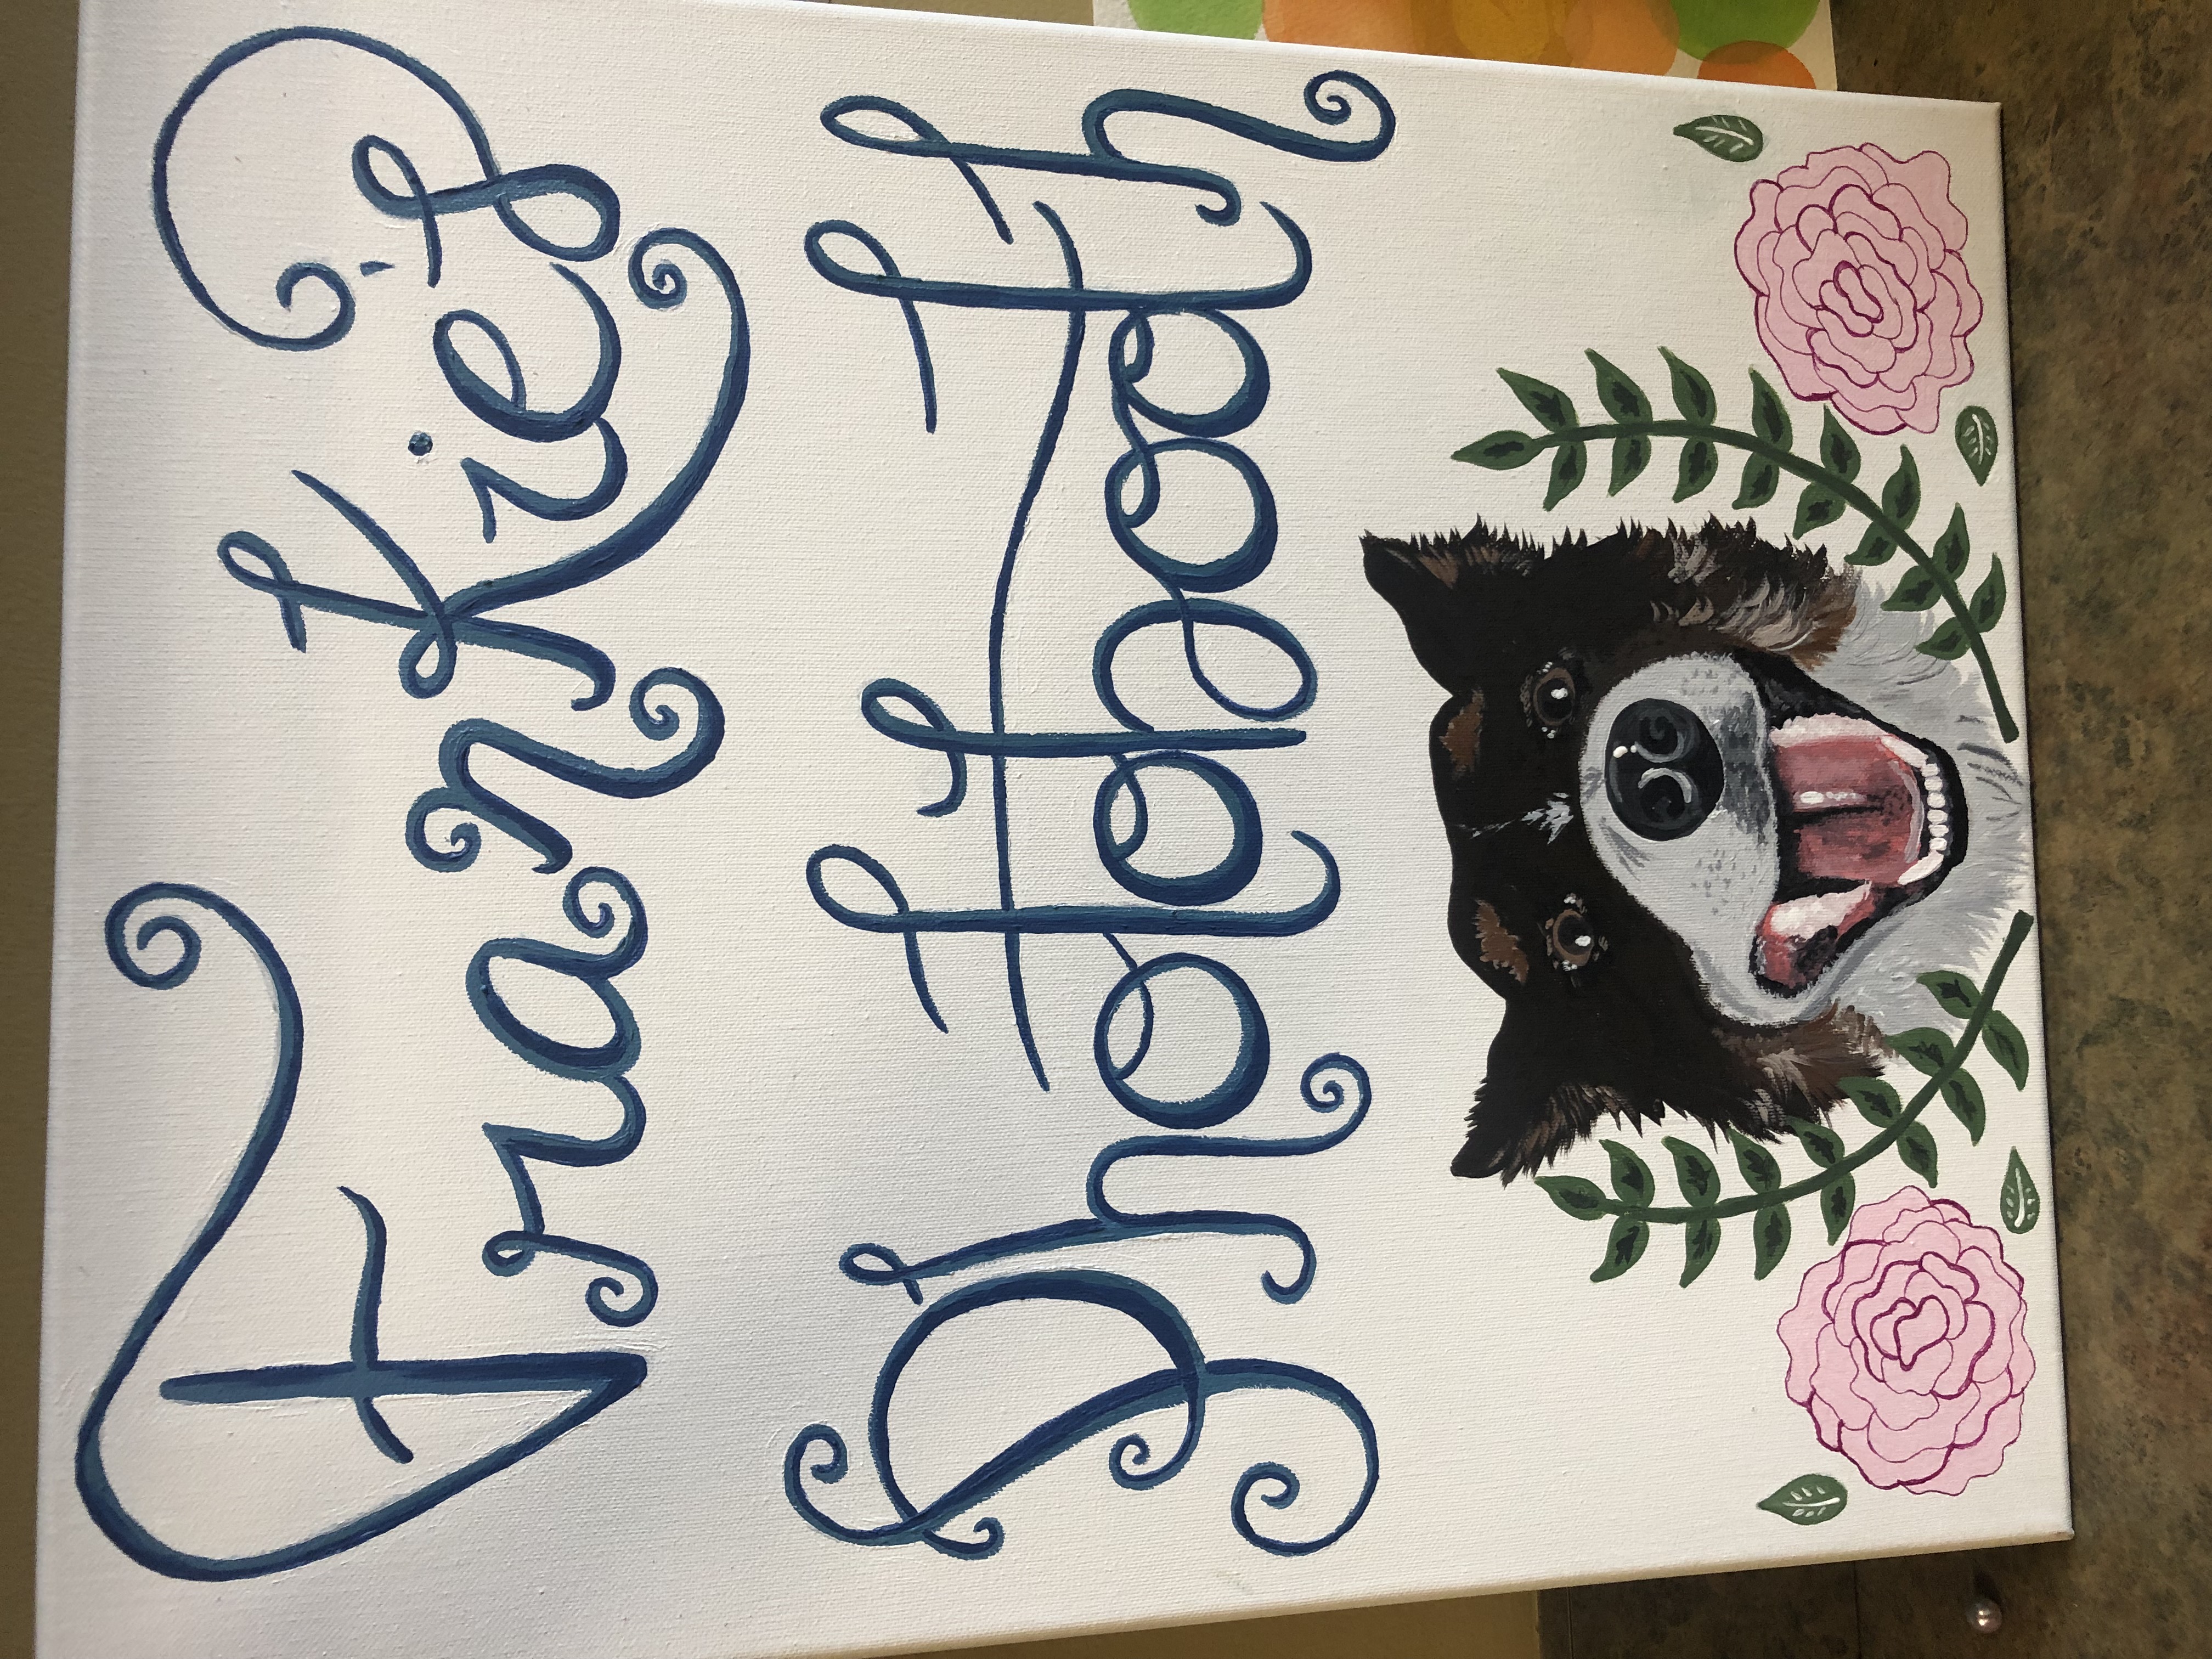 Frankie's
Photobooth